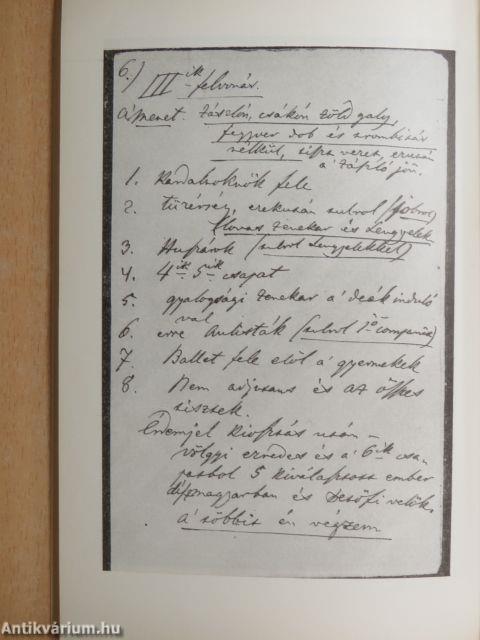 6.) III ik felvonás.
A' menet. Zászlón, csákón zöld galy,
fegyver dob és trombitás
nélkül, sipos vezet, ezután
a' zászló jön.
1. Kardalnoknők fele
2. tüzérség, ezekután subrol (jobrol)
lovas zenekar és Lengyelek
3. Huszárok (subrol Lengyelekkel)
4. 4ik 5ik csapat
5. gyalogsági zenekar a' deák induló
val
6. erre (subrol 1o compania)
7. Ballet fele elöl a' gyermekek
8. Nem adjutans és az összes
tisztek.
Érdemjel kiosztás után –
völgyi ezredes és a' 6ik csa-
patbol 5 kiválasztott ember
díszmagyarban és Dezsőfi velük.
A' többit én végzem
Antikvárium.hu